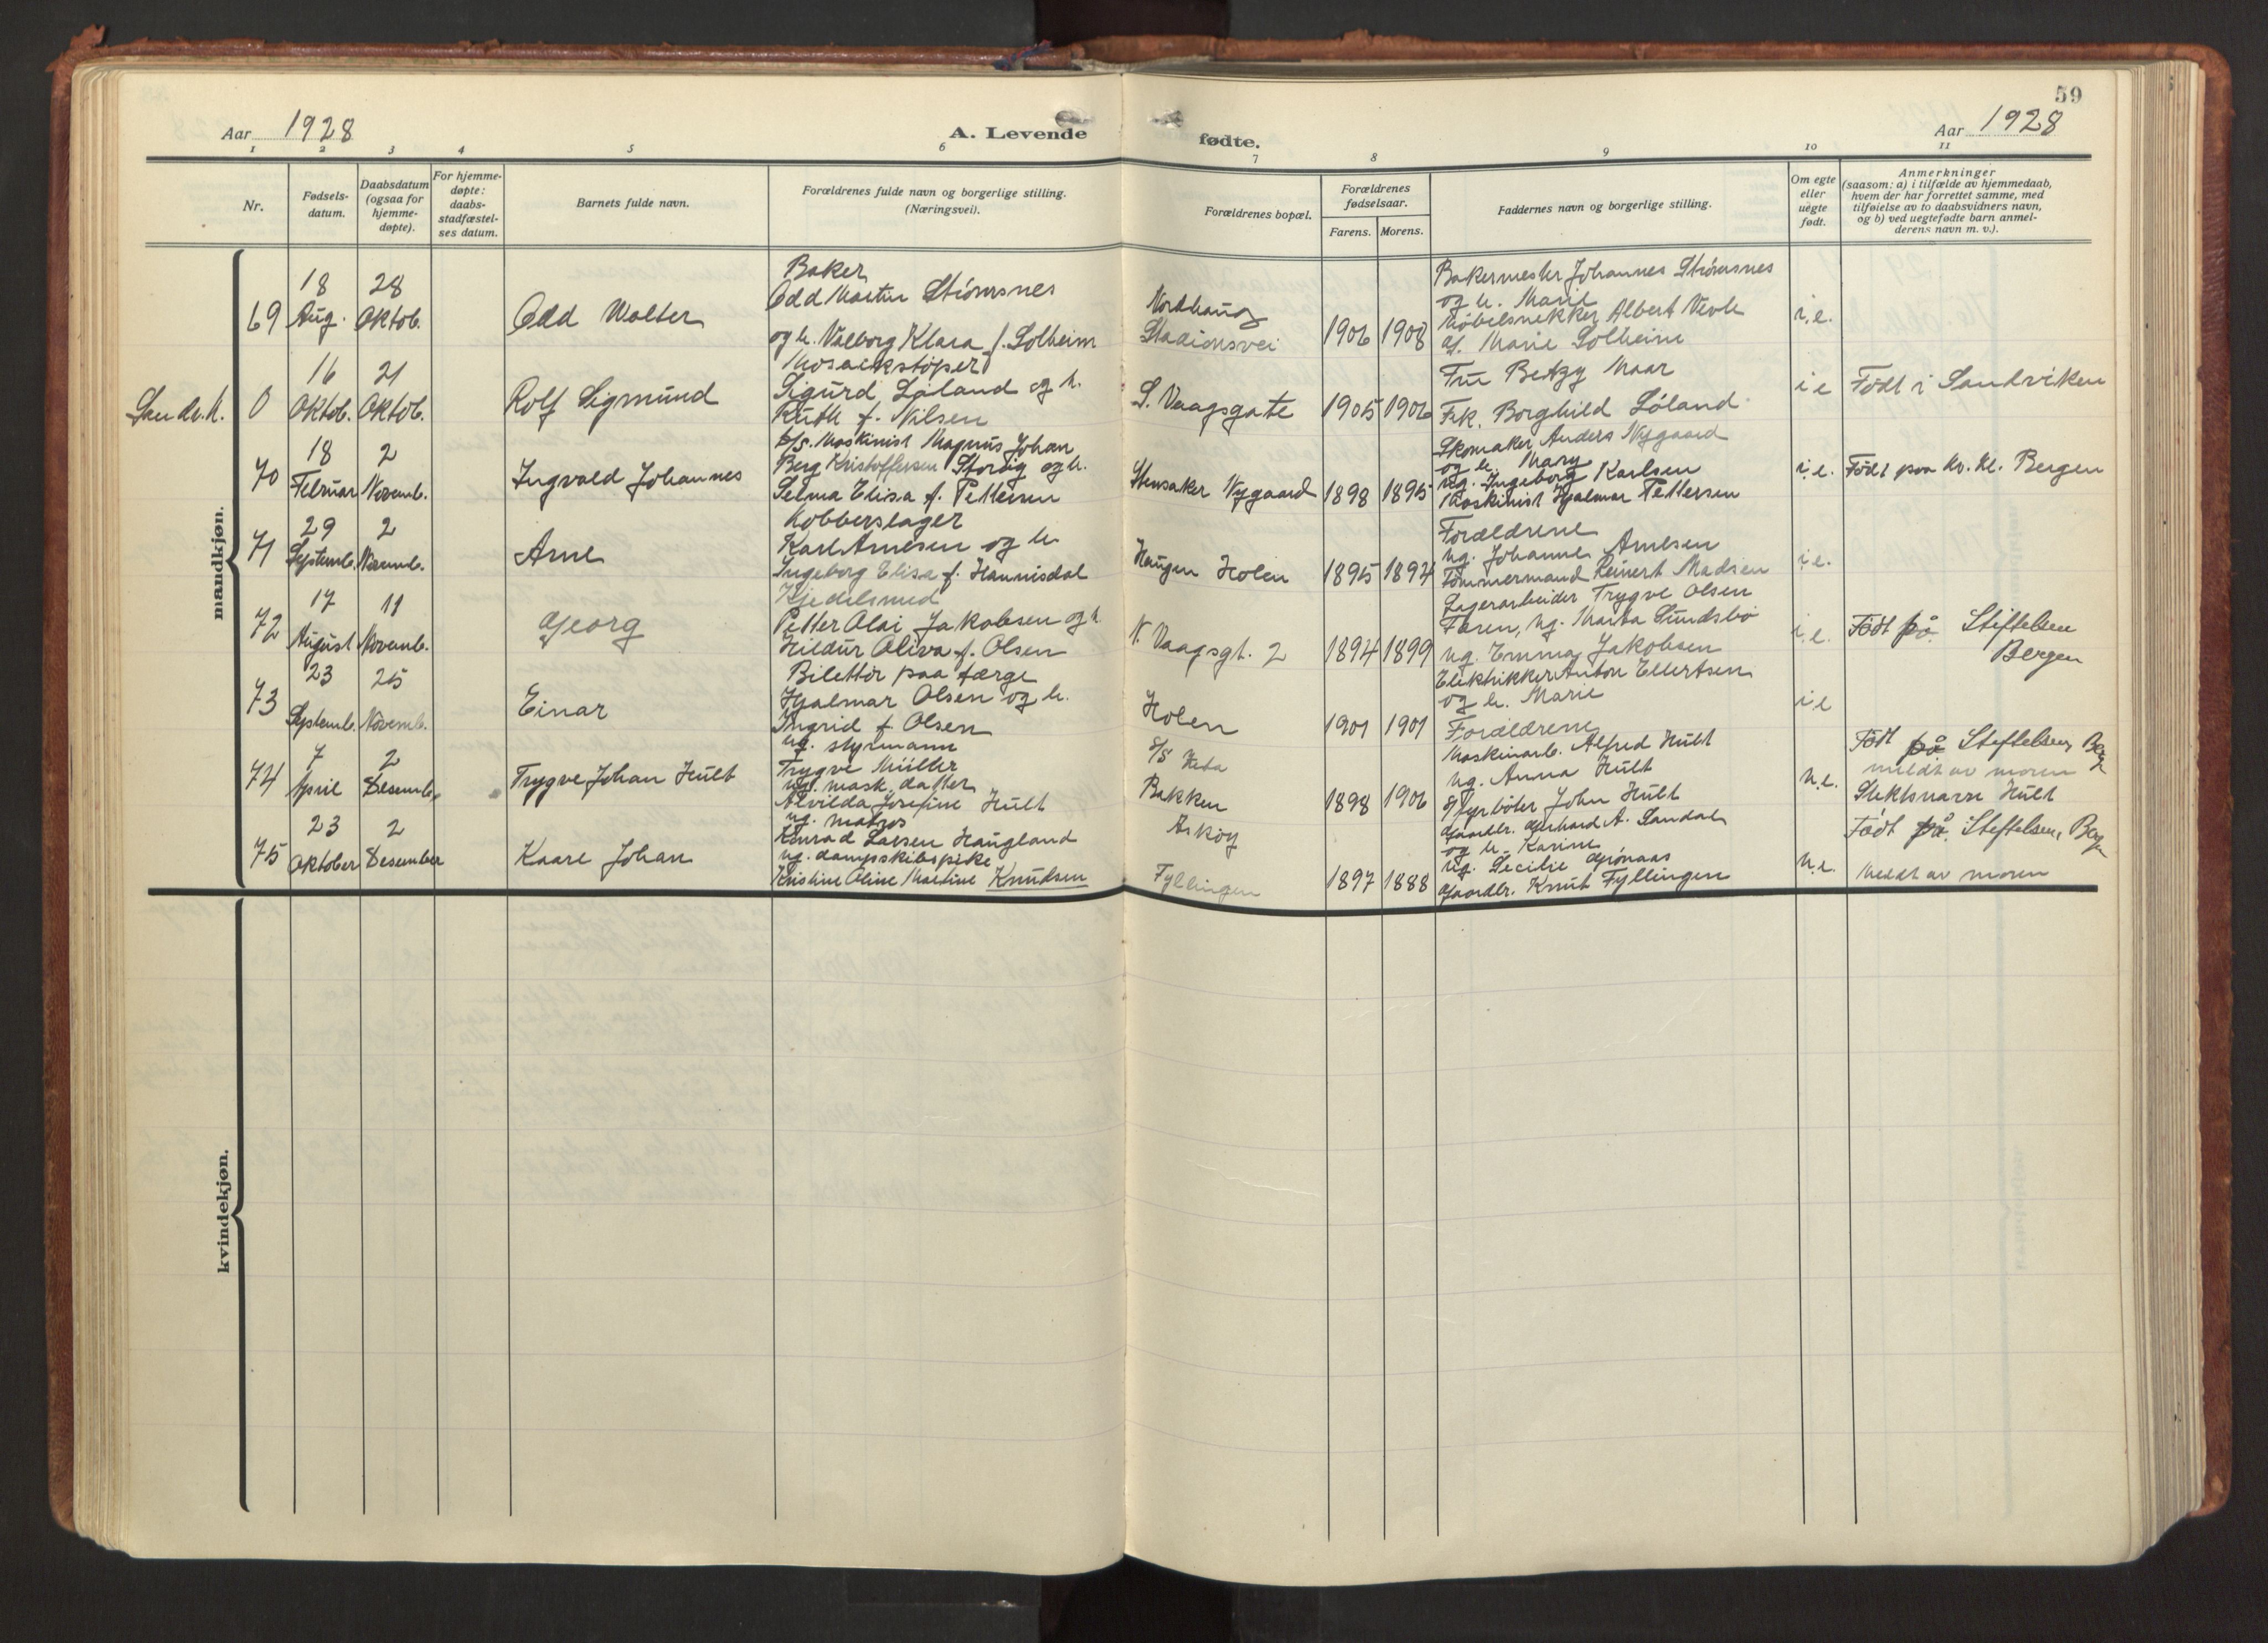 59
Aar 1928
A. Levende fødte.
Aar 1928
1 2 3 4 5 6 7 8 9 10 11
Nr.
Fødsels-
datum.
Daabsdatum
(ogsaa for
hjemme-
døpte).
For hjemme-
døpte:
daabs-
stadfæstel-
ses datum.
Barnets fulde navn.
Forældrenes fulde navn og borgerlige stilling.
(Næringsvei).
Forældrenes bopæl.
Forældrenes
fødselsaar.
Farens. Morens.
Faddernes navn og borgerlige stilling.
Om egte
eller
uegte
født.
Anmerkninger
(saasom: a) i tilfælde av hjemmedaab,
hvem der har forrettet samme, med
tilføielse av to daabsvidners navn,
og b) ved uegtefødte barn anmel-
derens navn m. v.).
mandkjøn.
69
18
Aug.
28
Oktob.
Odd Walter
Baker
Odd Martin Strömsnes
og h. Valborg Klara f. Solheim
Nordhaug
Stadionsvei
1906 1908
Bakermester Johannes Strömsnes
og h. Marie
Möbelsnekker Albert Vevle
Marie Solheim
i.e.
Sandv. k.
0
16
Oktob.
21
Oktob.
Rolf Sigmund
Mosaikstöper
Sigurd Löland og h.
Ruth f. Nilsen
S. Vaagsgate
1905 1906
Fru Betzy Maar
Frk. Borghild Löland
i e
Födt i Sandviken
70
18
Februar
2
Novemb.
Ingvald Johannes
D/S. Maskinist Magnus Johan
Berg Kristoffersen Storsig og h.
Selma Elisa f. Pettersen
Stensaker Nygaard
1898 1895
Skomaker Anders Nygaard
og h. Mary
ug. Ingeborg Karlsen
Maskinist Hjalmar Pettersen
i.e.
Födt paa Kv. kl. Bergen
71
29
Septemb.
2
Novemb.
Arne
Kobberslager
Karl Arnesen og h.
Ingeborg Elisa f. Hannisdal
Haugen Holen
1895 1894
Forældrene
ug. Johanne Arnesen
Tömmermand Reinert Madsen
Lagerarbeider Trygve Olsen
i.e.
72
17
August
11
Novemb.
Georg
Kjedelsmed
Petter Olai Jakobsen og h.
Hildur Oliva f. Olsen
N. Vaagsgt. 2
1894 1899
Faren, ug. Marta Sundsbö
ug. Emma Jakobsen
Elektrikker Anton Ellertsen
og h. Marie
i.e.
Födt på Stiftelsen
Bergen
73
23
Septemb.
25
Novemb.
Einar
Bilettör paa færge
Hjalmar Olsen og h.
Ingrid f. Olsen
Holen
1901 1901
Forældrene
i.e
74
7
April
2
Desember
Trygve Johan Hult
ug. styrmann
Trygve Müller
ug. mask. datter
Alvilda Josefine Hult
S/S Heba
Bakken
1898 1906
Maskinarb. Alfred Hult
ug. Anna Hult
Fyrböter John Hult
u.e.
Födt på Stiftelsen, Berg
meldt av moren
Slektsnavn Hult
75
23
Oktober
2
Desember
Kaare Johan
ug. matros
Konrad Larsen Haugland
ug. dampskibspike
Kristine Oline Martine Knudsen
Askøy
Fyllingen
1897 1888
Gaardbr. Gerhard A. Sandal
og h. Karine
ug. Secilie Grönaas
Gaardbr. Knut Fyllingen
u.e.
Födt på Stiftelsen, Berg
Meldt av moren
kvindekjøn.